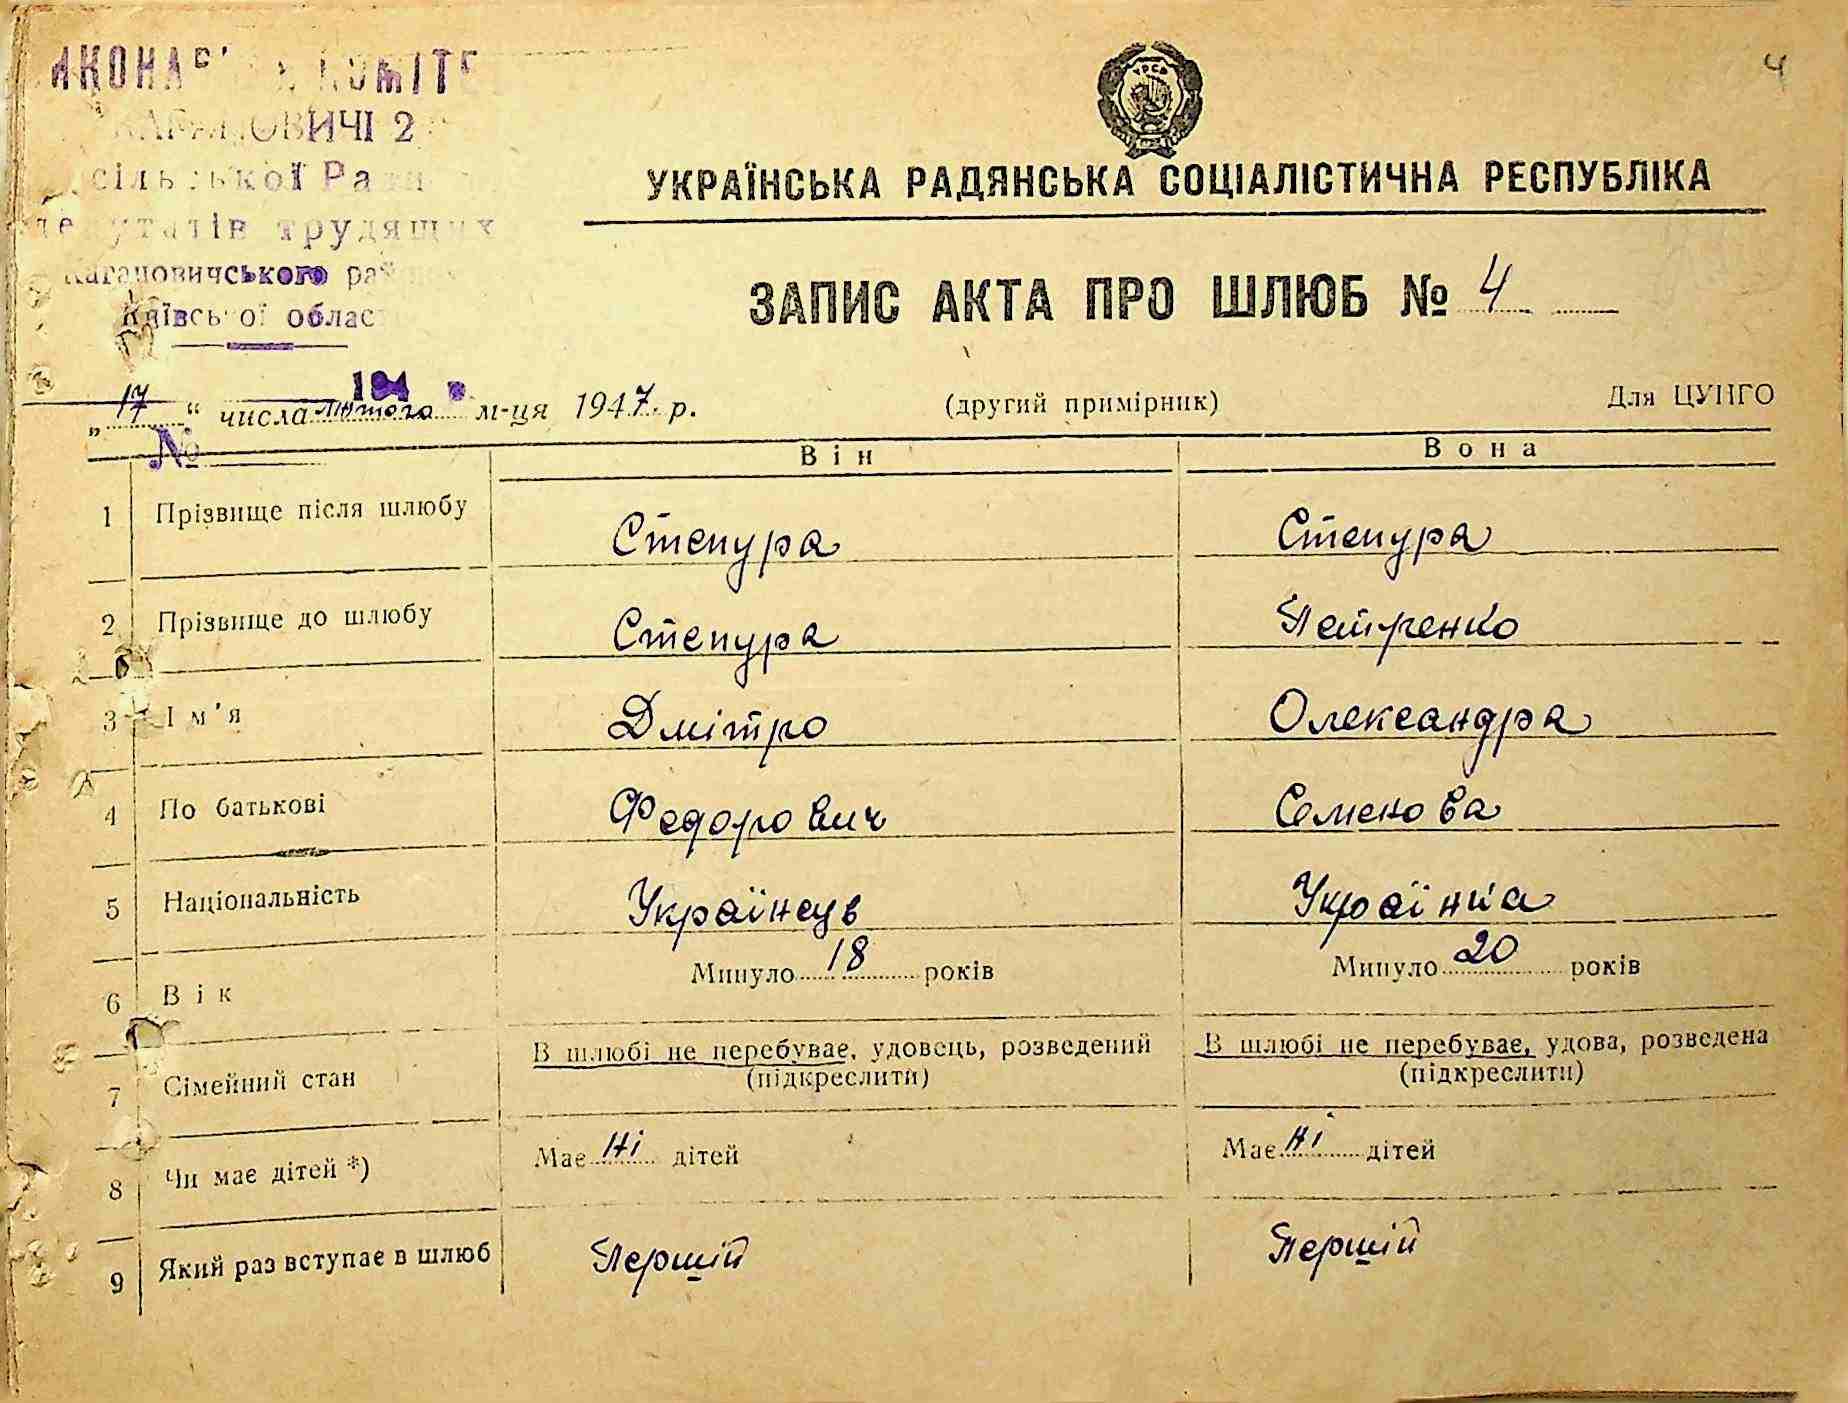 4
КОМІТЕ
2
сільської Ради
депутатів трудящих
Кагановичського
Київської облас
УРСР
УКРАЇНСЬКА РАДЯНСЬКА СОЦІАЛІСТИЧНА РЕСПУБЛІКА
ЗАПИС АКТА ПРО ШЛЮБ № 4
194
„17“ числа лютого м-ця 1947 р.
(другий примірник)
Для ЦУНГО
№
Він
Вона
1 Прізвище після шлюбу Степура Степура
2 Прізвище до шлюбу Степура Петренко
3 Ім'я Дмітро Олександра
4 По батькові Федорович Семенова
5 Національність Українець Українка
6 Вік Минуло 18 років Минуло 20 років
7 Сімейний стан В шлюбі не перебуває, удовець, розведений (підкреслити) В шлюбі не перебуває, удова, розведена (підкреслити)
8 Чи має дітей *) Має ні дітей Має ні дітей
9 Який раз вступає в шлюб Першій Першій